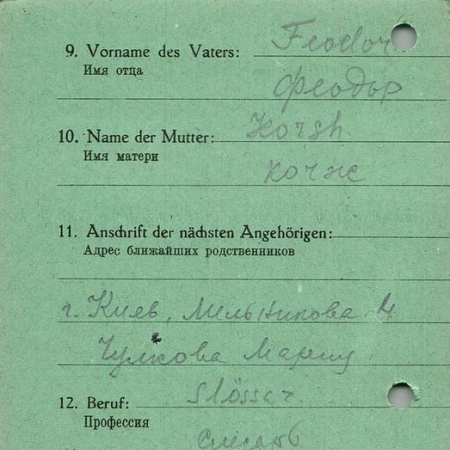 9. Vorname des Vaters: Feodor
Имя отца
Феодор
10. Name der Mutter: Korsh
Имя матери
Корж
11. Anschrift der nächsten Angehörigen:
Адрес ближайших родственников
г. Киев, Мельникова 4
Чумкова Мария
12. Beruf: Slösser
Профессия
Слесарь